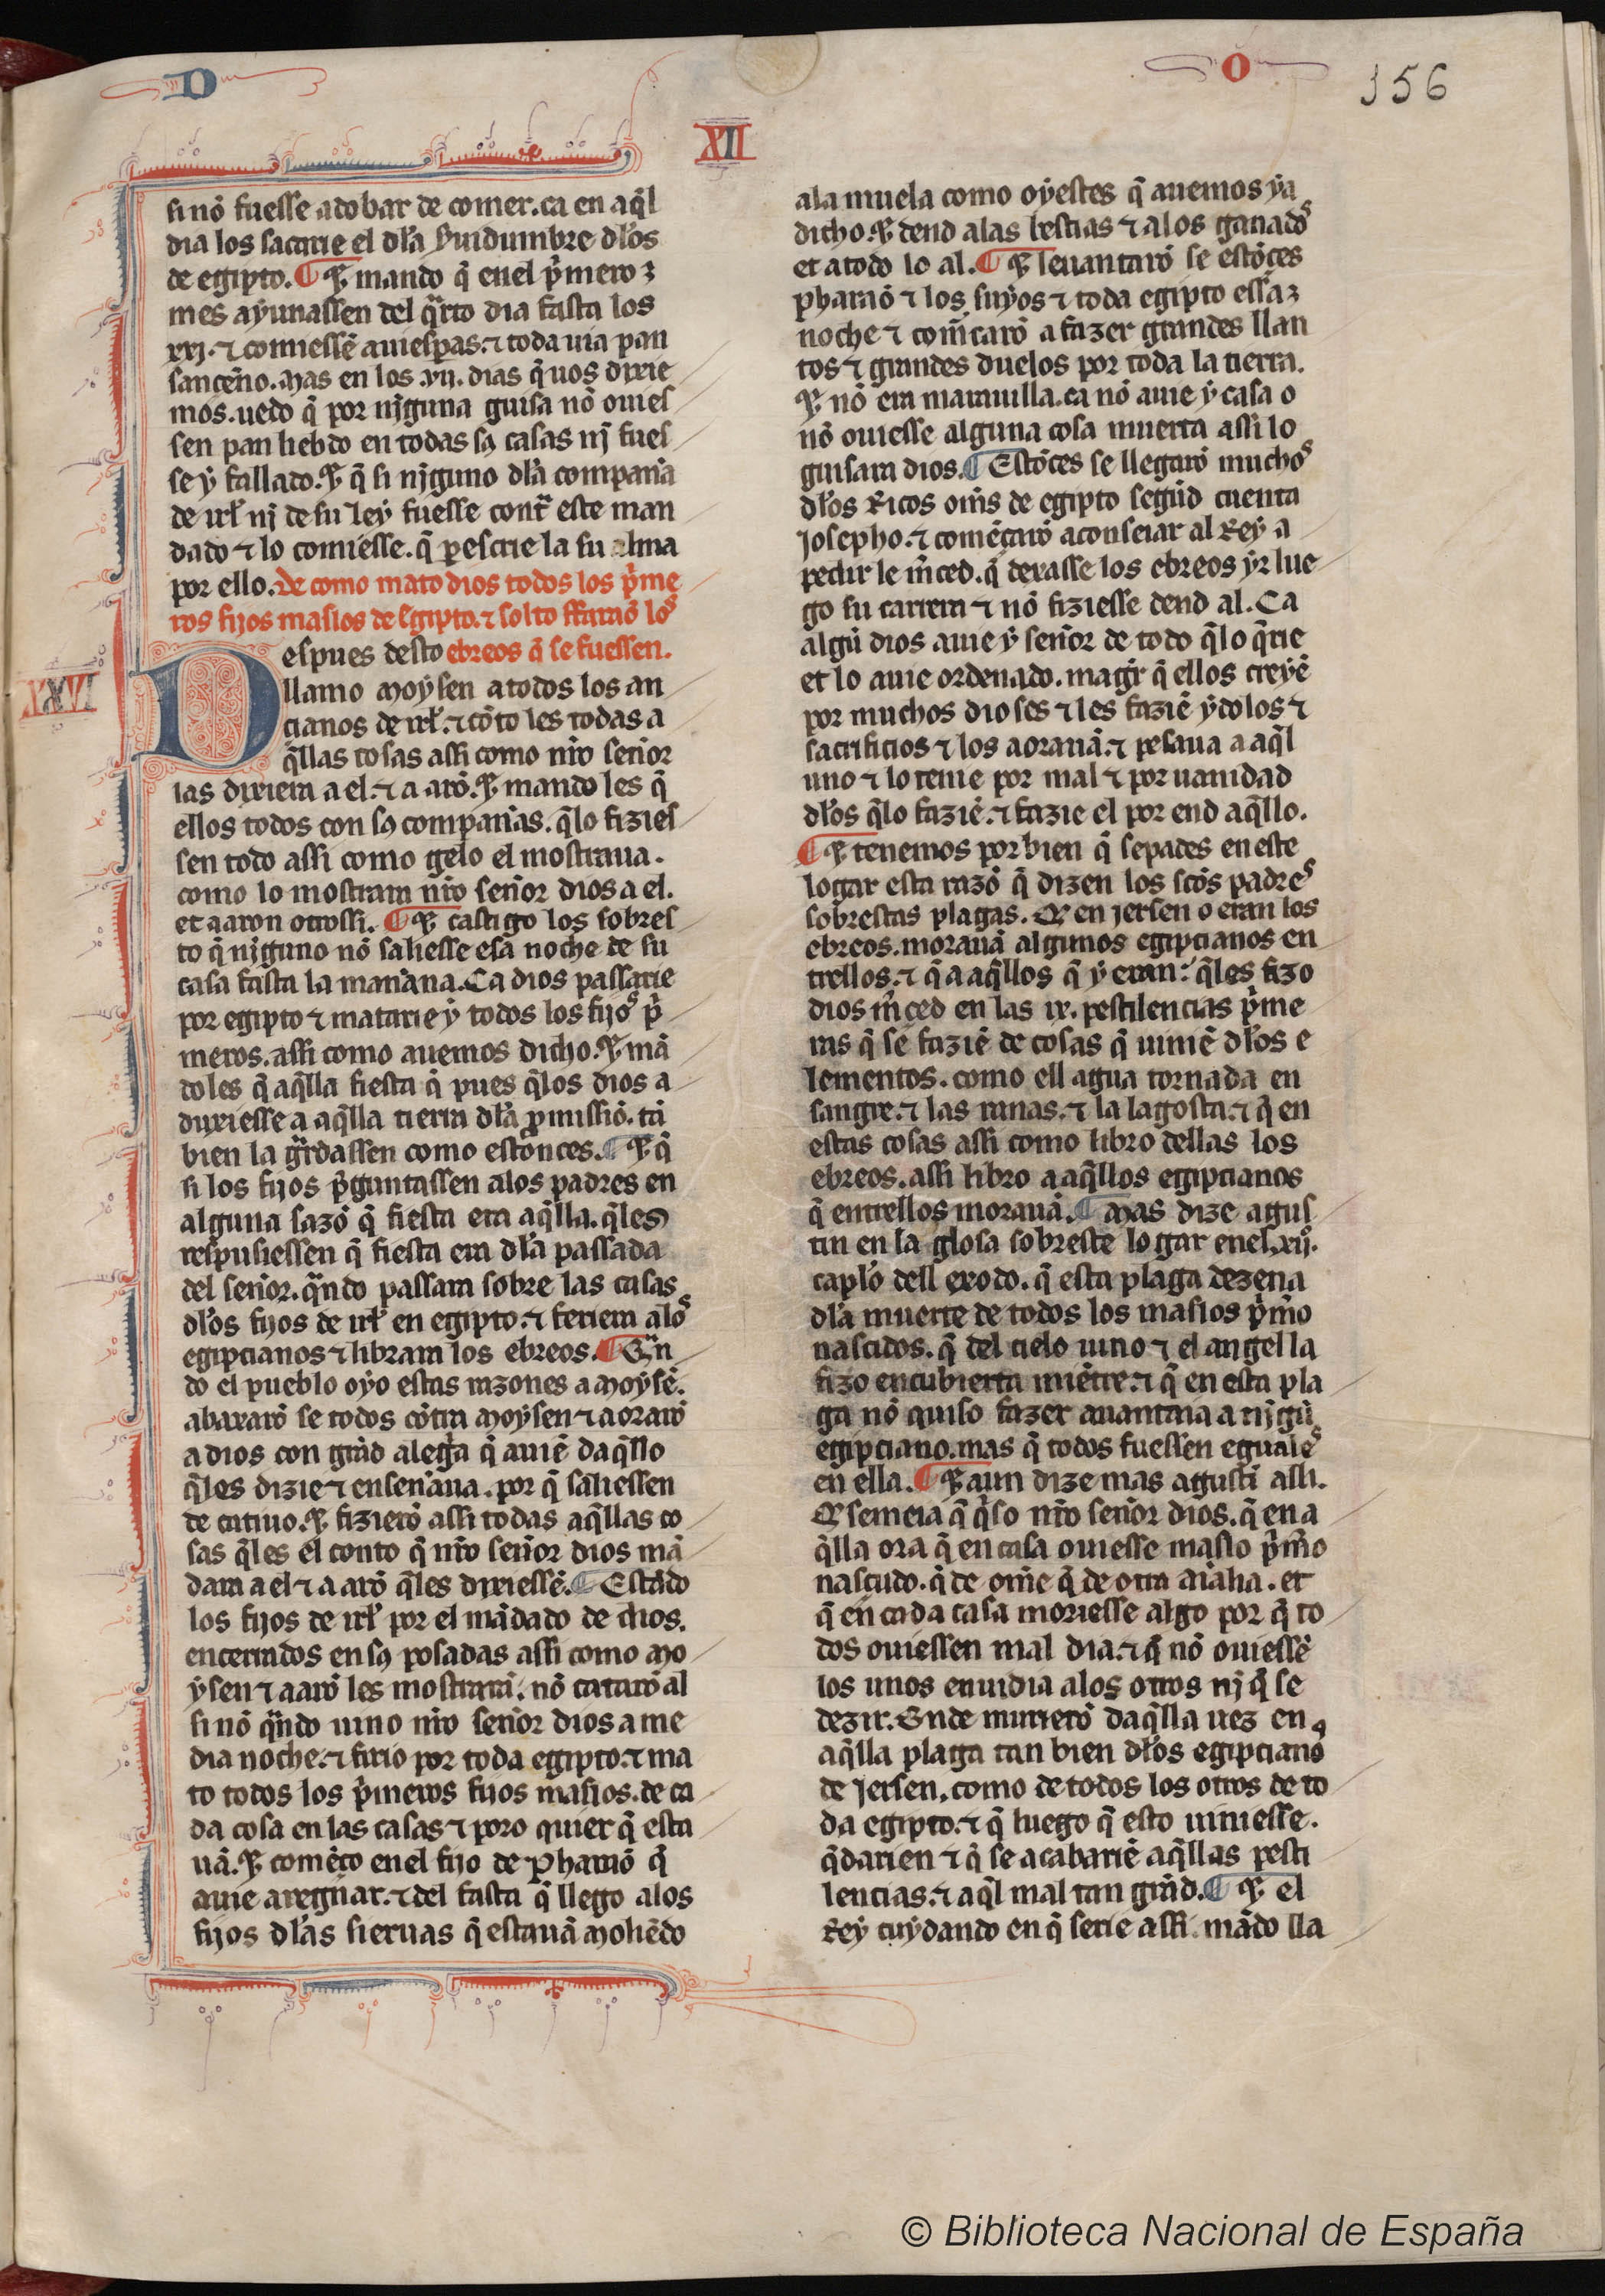 D
O
156
XII
si nõ fuesse adobar de comer. ca en aq̃l
dia los sacarie el dła ẜuidumbre dłos
de egipto. ¶ ⁊ mando q̃ enel p̃mero
mes ayunassen del q̃rto dia fasta los
xxj. ⁊ comiessẽ auiesp̃as. ⁊ toda uia pan
sanceño. Mas en los .vii. dias q̃ uos dixie
mos. uedo q̃ por njguna guisa nõ ouies
sen pan liebdo en todas sꝯ casas nj fues
se y fallado. ⁊ q̃ si njguno dła companna
de irł nj de su ley fuesse cont̃ este man
dado ⁊ lo comiesse. q̃ perescrie la su alma
por ello. De como mato dios todos los p̃me
ros fijos maslos de Egipto. ⁊ solto ffaraõ los
LXXXI
Despues desto ebreos q̃ se fuessen.
llamo Moysen a todos los an
cianos de irł. ⁊ cõto les todas a
q̃llas cosas assi como nr̃o sennor
las dixiera a el. ⁊ a arõ. ⁊ mando les q̃
ellos todos con sꝯ compannas. q̃lo fizies
sen todo assi como gelo el mostraua.
como lo mostrara nr̃o sennor dios a el.
et aaron otrossi. ¶ ⁊ castigo los sobres
to q̃ njguno nõ saliesse esa noche de su
casa fasta la mannana. Ca dios passarie
por egipto ⁊ matarie y todos los fijos p̃
meros. assi como auemos dicho. ⁊ mã
doles q̃ aq̃lla fiesta q̃ pues q̃los dios a
duxiesse a aq̃lla tierra dła ꝓmissiõ. tã
bien la g̃rdassen como estonces. ¶ ⁊ q̃
si los fijos p̃guntassen alos padres en
alguna sazõ q̃ fiesta era aq̃lla. q̃les
respusiessen q̃ fiesta era dła passada
del sennor. q̃ndo passara sobre las casas
dłos fijos de irł en egipto. ⁊ feriera alos
egipcianos ⁊ librara los ebreos. ¶ Q̃n
do el pueblo oyo estas razones a Moysẽ.
abaxarõ se todos cõtra Moysen ⁊ aorarõ
a dios con grãd aleg̃a q̃ auiẽ daq̃llo
q̃les dizie ⁊ ensennaua. por q̃ saliessen
de catiuo. ⁊ fizierõ assi todas aq̃llas co
sas q̃les el conto q̃ nr̃o sennor dios mã
dara a el ⁊ a arõ q̃les dixiessẽ. ¶ Estãdo
los fijos de irł por el mãdado de dios.
encerrados en sꝯ posadas assi como Mo
ysen ⁊ aarõ les mostrarã. nõ catarõ al
si nõ q̃ndo uino nr̃o sennor dios a me
dia noche. ⁊ firio por toda egipto. ⁊ ma
to todos los p̃meros fijos maslos. de ca
da cosa en las casas ⁊ poro quier q̃ esta
uã. ⁊ comẽço enel fijo de Pharaõ q̃
auie aregnar. ⁊ del fasta q̃ llego alos
fijos dłas sieruas q̃ estauã moliẽdo
ala muela como oyestes q̃ auemos ya
dicho. ⁊ dend alas bestias ⁊ alos ganados
et atodo lo al. ¶ ⁊ leuantarõ se estõces
pharaõ ⁊ los suyos ⁊ toda egipto essa
noche ⁊ comẽçarõ a fazer grandes llan
tos ⁊ grandes duelos por toda la tierra.
⁊ nõ era marauilla. ca nõ auie y casa o
nõ ouiesse alguna cosa muerta assi lo
guisara dios. ¶ Estõces se llegarõ muchos
dłos Ricos om̃s de egipto segũd cuenta
josepho. ⁊ comẽçarõ aconseiar al Rey a
pedir le m̃ced. q̃ dexasse los ebreos yr lue
go su carrera ⁊ nõ fiziesse dend al. Ca
algũ dios auie y sennor de todo q̃lo q̃rie
et lo auie ordenado. mag̃r q̃ ellos creyẽ
por muchos dioses ⁊ les faziẽ ydolos ⁊
sacrificios ⁊ los aorauã. ⁊ pesaua a aq̃l
uno ⁊ lo tenie por mal ⁊ por uanidad
dłos q̃lo faziẽ. ⁊ fazie el por end aq̃llo.
¶ ⁊ tenemos por bien q̃ sepades en este
logar esta razõ q̃ dizen los sc̃os padres
sobrestas plagas. Q̃ en jersen o eran los
ebreos. morauã algunos egipcianos en
trellos. ⁊ q̃ a aq̃llos q̃ y eran. q̃les fizo
dios m̃ced en las ix. pestilencias p̃me
ras q̃ se faziẽ de cosas q̃ uiniẽ dłos e
lementos. como ell agua tornada en
sangre. ⁊ las ranas. ⁊ la lagosta. ⁊ q̃ en
estas cosas assi como libro dellas los
ebreos. assi libro a aq̃llos egipcianos
q̃ entrellos morauã. ¶ Mas dize agus
tin en la glosa sobreste logar enel .xij.
capł̃o dell exodo. q̃ esta plaga dezena
dła muerte de todos los maslos p̃m̃o
nascidos. q̃ del cielo uino ⁊ el angel la
fizo encubierta miẽtre. ⁊ q̃ en esta pla
ga nõ quiso fazer auantaia a njgũ
egipciano. mas q̃ todos fuessen eguales
en ella. ¶ ⁊ aun dize mas agustĩ assi.
Q̃ semeia q̃ q̃so nr̃o sennor dios. q̃ en a
q̃lla ora q̃ en casa ouiesse maslo p̃m̃o
nascudo. q̃ de om̃e q̃ de otra aĩalia. et
q̃ en cada casa moriesse algo por q̃ to
dos ouiessen mal dia. ⁊ q̃ nõ ouiessẽ
los unos enuidia alos otros nj q̃ se
dezir. Onde murierõ daq̃lla uez en
aq̃lla plaga tan bien dłos egipcianos
de Jersen. como de todos los otros de to
da egipto. ⁊ q̃ luego q̃ esto uiniesse.
q̃darien ⁊ q̃ se acabariẽ aq̃llas pesti
lencias. ⁊ aq̃l mal tan grãd. ¶ ⁊ el
Rey cuydando en q̃ serie assi. mãdo lla
© Biblioteca Nacional de España